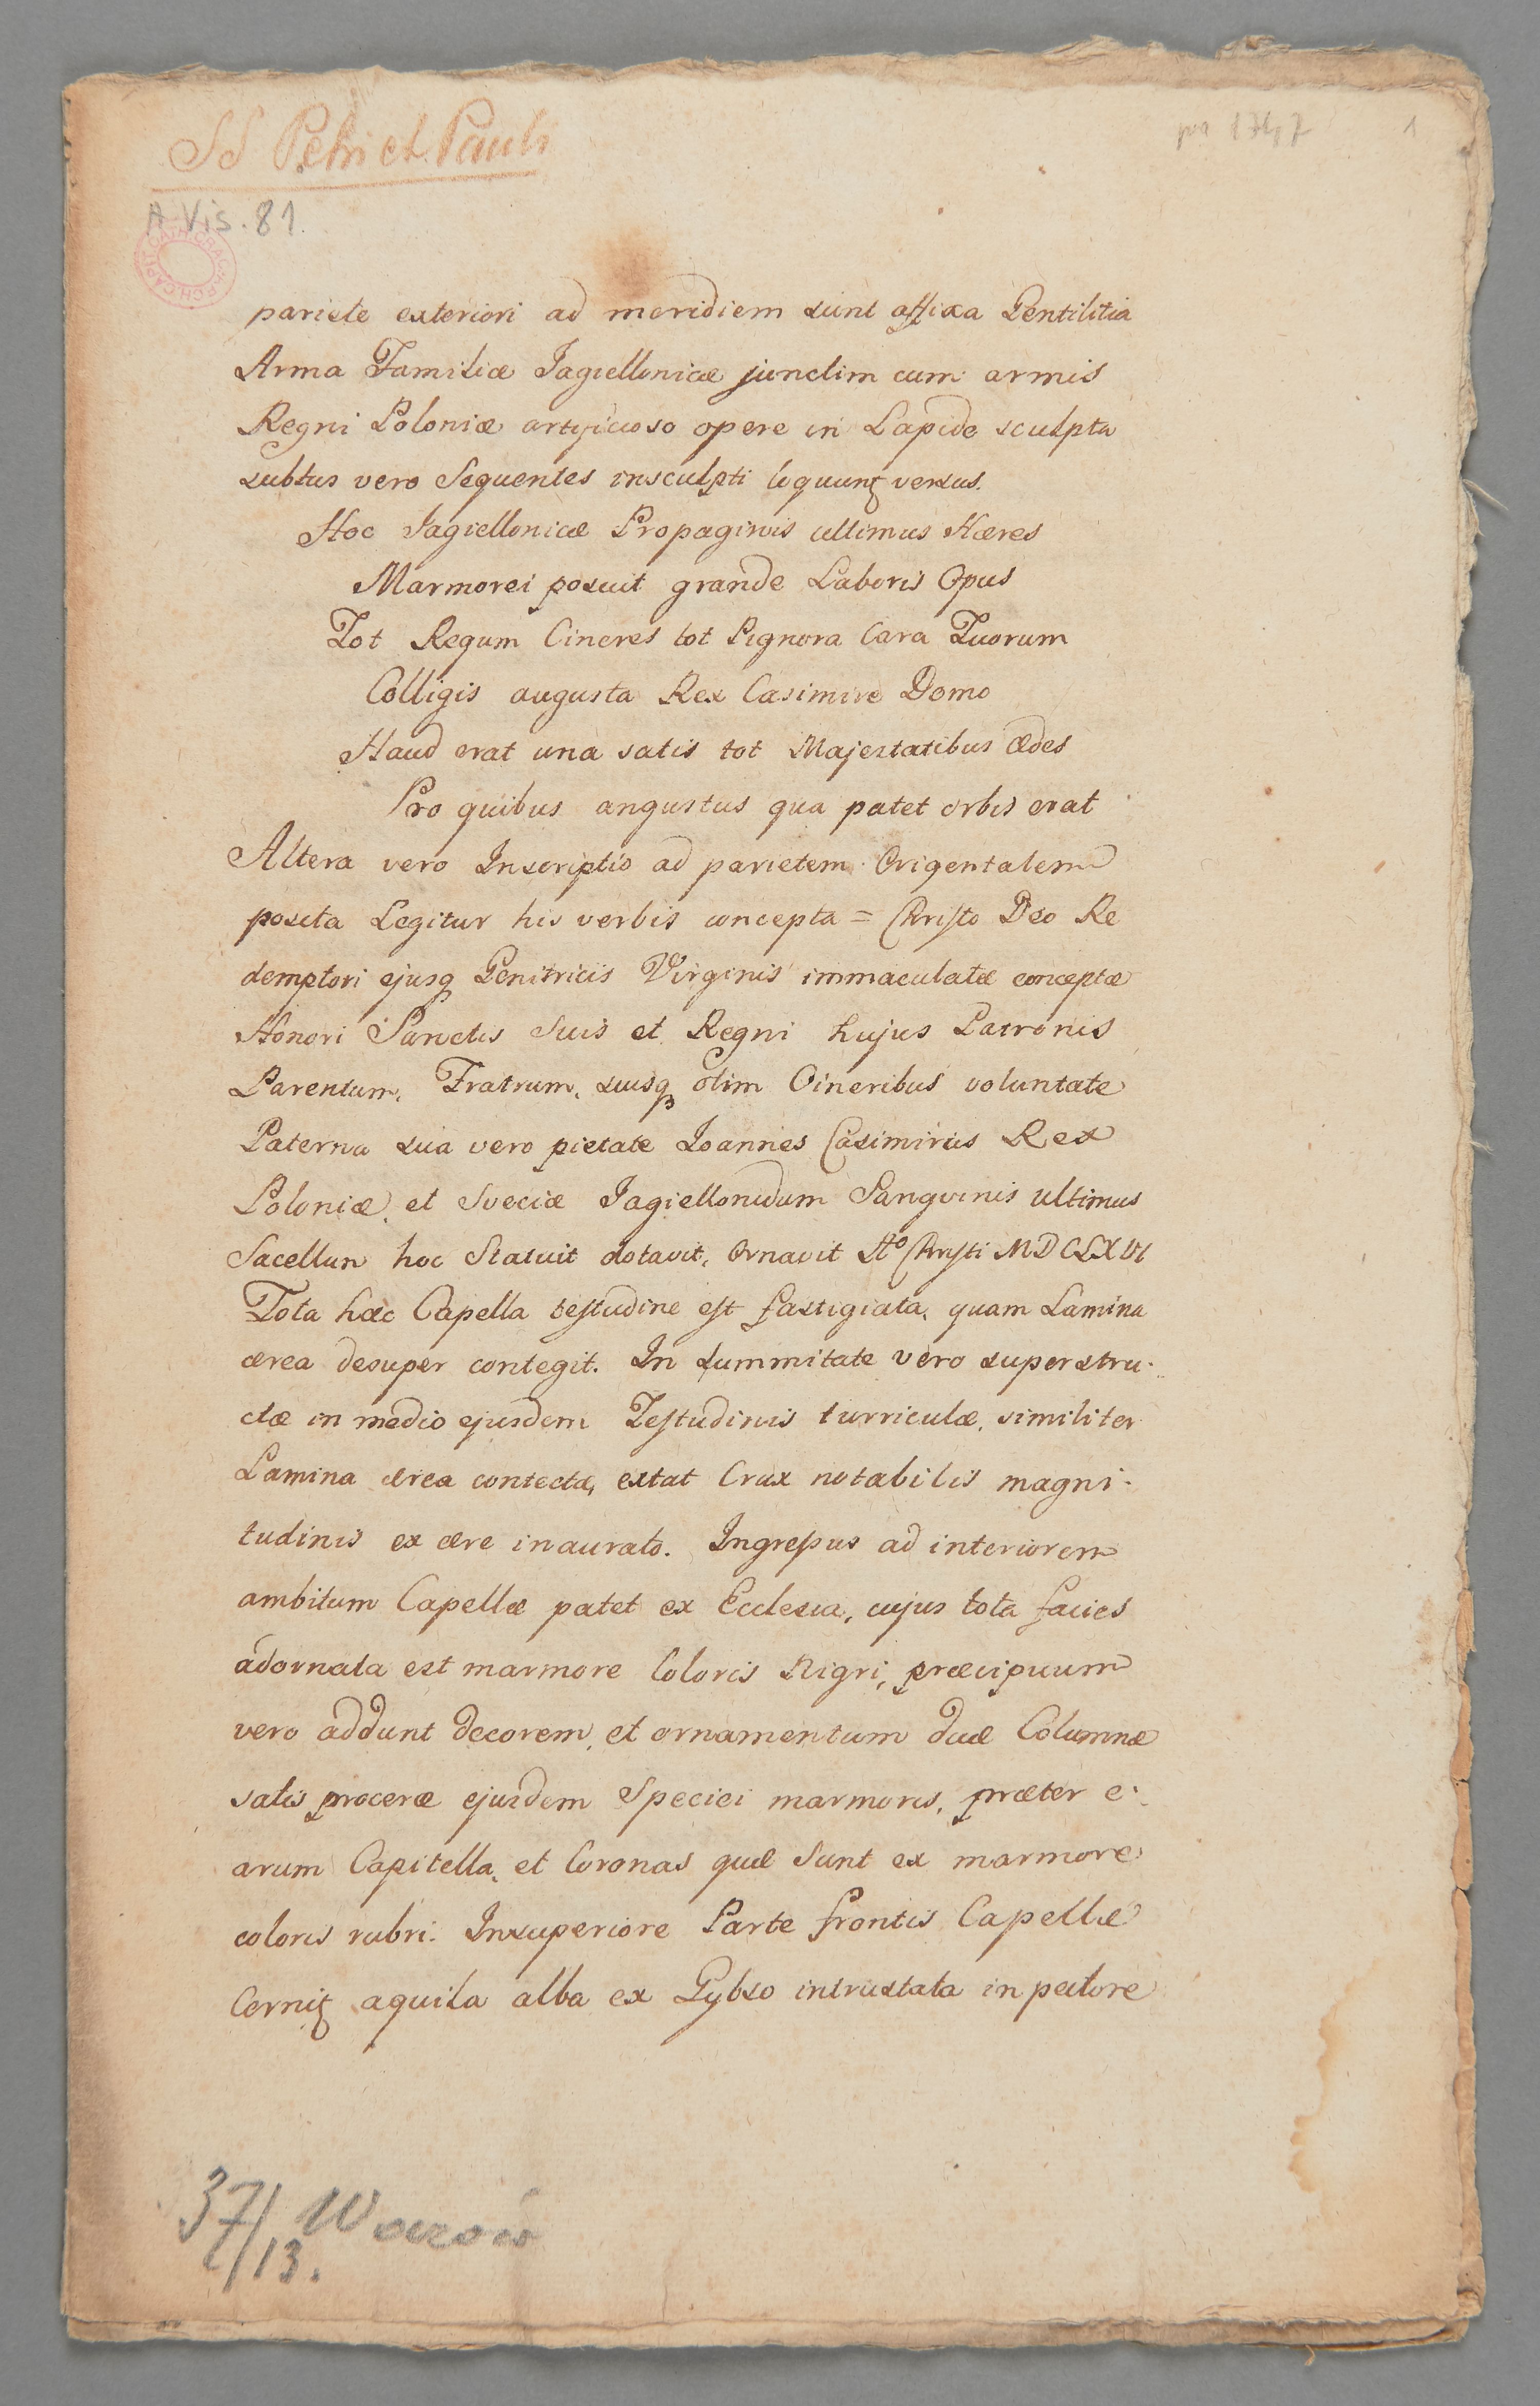 SS Petri et Pauli
1
A Vis. 81.
pariete exteriori ad meridiem sunt affixa Gentilitia
Arma Familiæ Jagiellonicæ junctim cum armis
Regni Poloniæ artificioso opere in Lapide sculpta
subtus vero Sequentes insculpti loquunt versus.
Hoc Jagiellonicæ Propaginis ultimus Hæres
Marmorei posuit grande Laboris Opus
Tot Regum Cineres tot Pignora Cara Tuorum
Colligis augusta Rex Casimire Domo
Haud erat una satis tot Majestatibus ædes
Pro quibus angustus qua patet orbis erat
Altera vero Inscriptio ad parietem Origentalem
posita Legitur his verbis concepta = Christo Deo Re
demptori ejusq Genitricis Virginis immaculatæ conceptæ
Honori Sanctis Suis et Regni hujus Patronis
Parentum, Fratrum, suisq olim Cineribus voluntate
Paterna sua vero pietate Joannes Casimirus Rex
Poloniæ, et Sveciæ Jagiellonidum Sangvinis ultimus
Sacellum hoc Statuit dotavit, Ornavit Aº Christi MDCLXVI
Tota hæc Capella testudine est fastigiata, quam Lamina
ærea desuper contegit. In summitate vero superstru-
ctæ in medio ejusdem Testudinis turriculæ, similiter
Lamina ærea contectæ, extat Crux notabilis magni-
tudinis ex ære inaurato. Ingressus ad interiorem
ambitum Capellæ patet ex Ecclesia, cujus tota facies
adornata est marmore Coloris Nigri, præcipuum
vero addunt decorem, et ornamentum duæ Columnæ
satis proceræ ejusdem Speciei marmoris, præter e-
arum Capitella, et Coronas quæ Sunt ex marmore
coloris rubri. In superiore Parte frontis Capellæ
Cernit aquila alba ex Gybso intrustata in pectore
37/13.